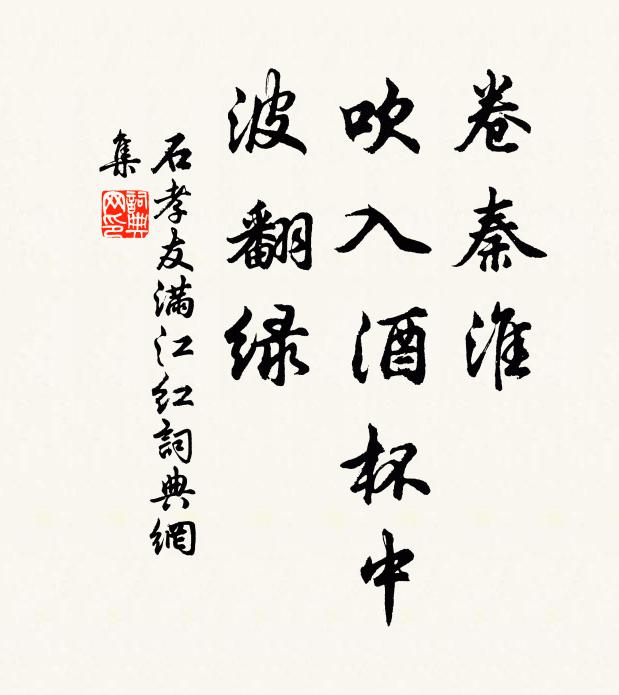 卷秦淮
吹入酒杯中
波翻绿
石孝友滿江红詞典網
集
詞典
网印